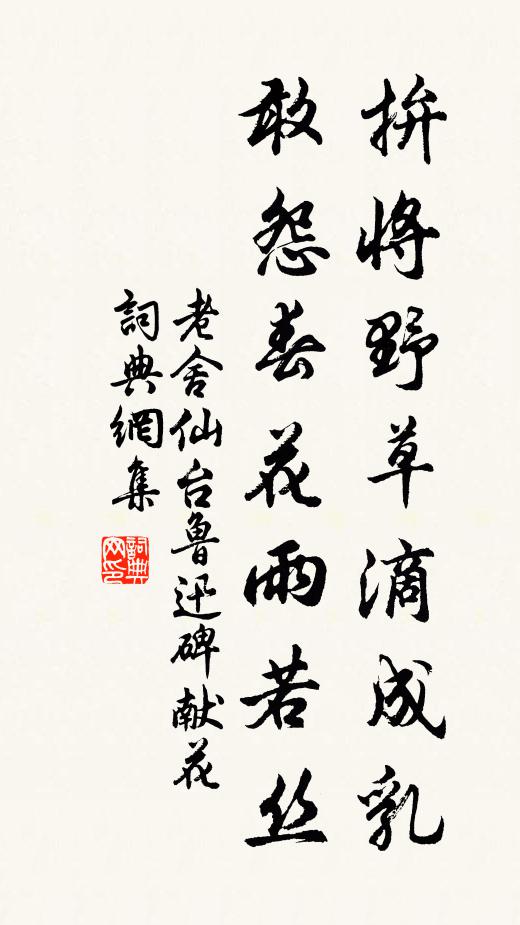 拚將野草滴成乳
敢怨春花雨若丝
老舍仙台鲁迅碑献花
詞典網集
詞典网印